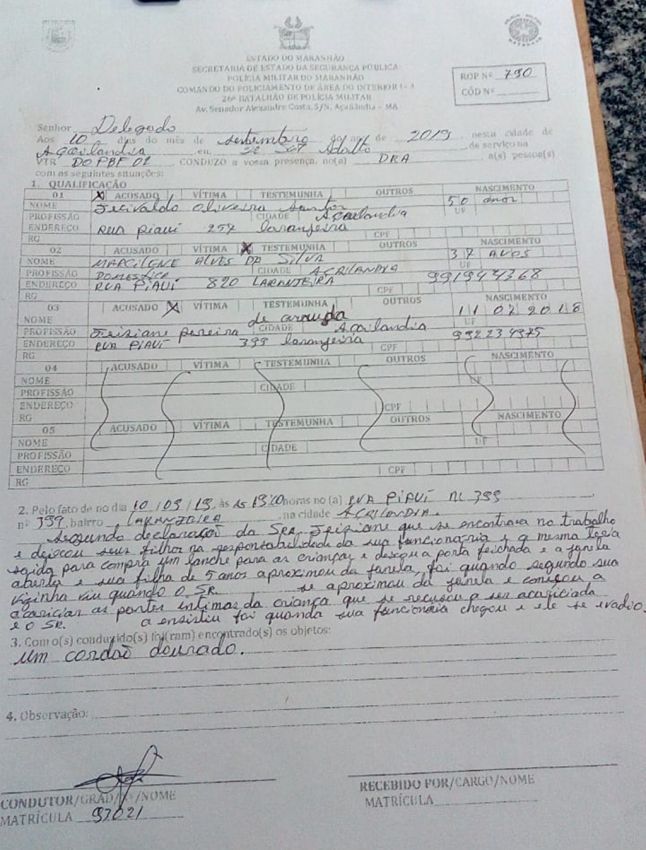 ESTADO DO MARANHÃO
SECRETARIA DE ESTADO DA SEGURANÇA PÚBLICA
POLÍCIA MILITAR DO MARANHÃO
COMANDO DO POLICIAMENTO DE ÁREA DO INTERIOR I - 3
26º BATALHÃO DE POLÍCIA MILITAR
Av. Senador Alexandre Costa, S/N, Açailândia - MA
ROP Nº 790
CÓD Nº
Senhor Delegado
Aos 10 dias do mês de setembro do ano de 2019 nesta cidade de
Açailandia eu de serviço na
VTR DOPBF 02, CONDUZO a vossa presença, no(a) DRA a(s) pessoa(s)
com as seguintes situações:
1. QUALIFICAÇÃO
01 X ACUSADO VÍTIMA TESTEMUNHA OUTROS NASCIMENTO
NOME Oliveira 50 anos
PROFISSÃO CIDADE Açailandia UF
ENDEREÇO Rua Piauí 257 laranjeira
RG CPF
02 ACUSADO VÍTIMA X TESTEMUNHA OUTROS NASCIMENTO
NOME MARCILONE ALVES DA SILVA 37 ANOS
PROFISSÃO DOMESTICA CIDADE UF
ENDEREÇO RUA PIAUÍ 820 LARANJEIRA
RG CPF
03 ACUSADO X VÍTIMA TESTEMUNHA OUTROS NASCIMENTO
NOME de 11 02 2018
PROFISSÃO Pereira CIDADE Açailandia UF
ENDEREÇO RUA PIAUÍ 399 laranjeira
RG CPF
04 ACUSADO VÍTIMA TESTEMUNHA OUTROS NASCIMENTO
NOME UF
PROFISSÃO CIDADE
ENDEREÇO CPF
RG
05 ACUSADO VÍTIMA TESTEMUNHA OUTROS NASCIMENTO
NOME UF
PROFISSÃO CIDADE
ENDEREÇO
RG CPF
2. Pelo fato de no dia 10/09/19, às horas no(a) RUA PIAUÍ Nº 399
nº 399, bairro LARANJEIRA, na cidade
segundo declaração da Sra que se encontrava no trabalho
e deixou seus filhos na responsabilidade da sua funcionaria e a mesma teria
saido para compra um lanche para as crianças e deixou a porta feichada e a janela
aberta e sua filha de 5 anos aproximou da janela, foi quando segundo sua
viginha viu quando o Sr. se aproximou da janela e começou a
acariciar as partes intimas da criança que se recusou a ser acariciada
e o Sr. a foi quando sua funcionaria chegou e ele se evadio.
3. Com o(s) conduzido(s) foi(ram) encontrado(s) os objetos:
um cordão dourado.
4. Observação:
CONDUTOR/GRAD/Nº/NOME
MATRÍCULA 97021
RECEBIDO POR/CARGO/NOME
MATRÍCULA